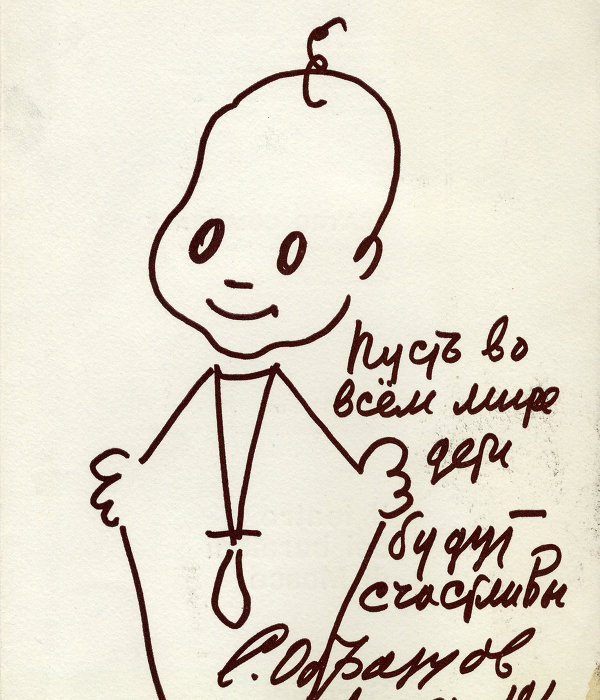 Пусть во
всём мире
дети
будут
счастливы
С. Образцов